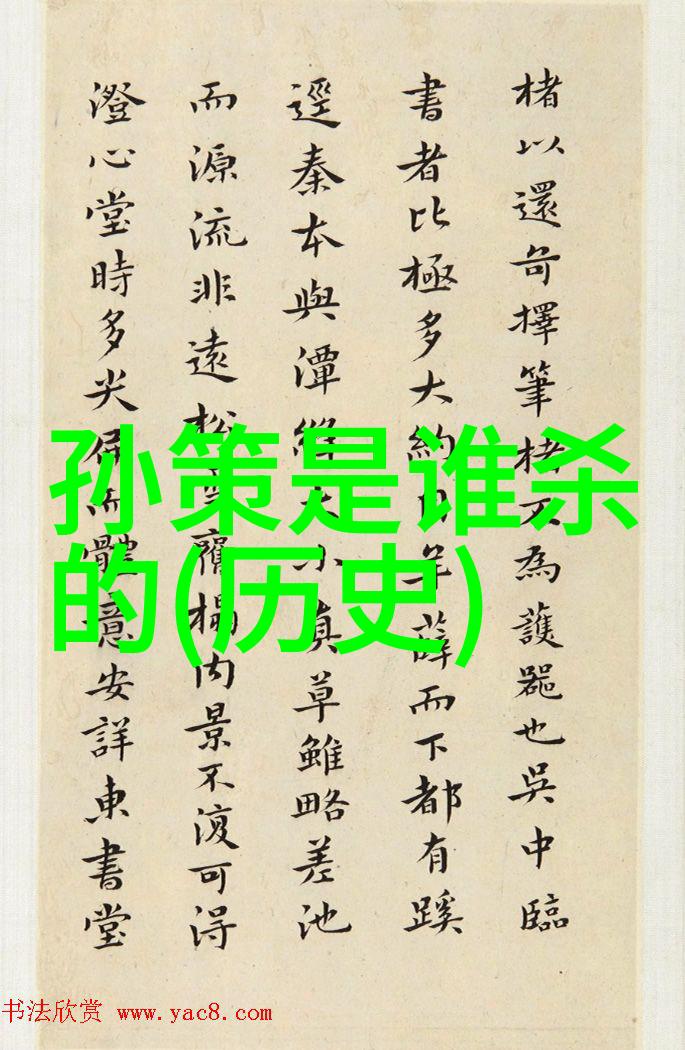 楮以還奇擇筆楮不為護器也吳中臨
書者比極多大約薛而下都有蹊
逕秦本與潭絳大小真草雖略差池
而源流非遠松齋榻內景不復可得
澄心堂時多尖體意安詳東書堂
孙策是谁杀
的(历史)
书法欣赏 www.yac8.com